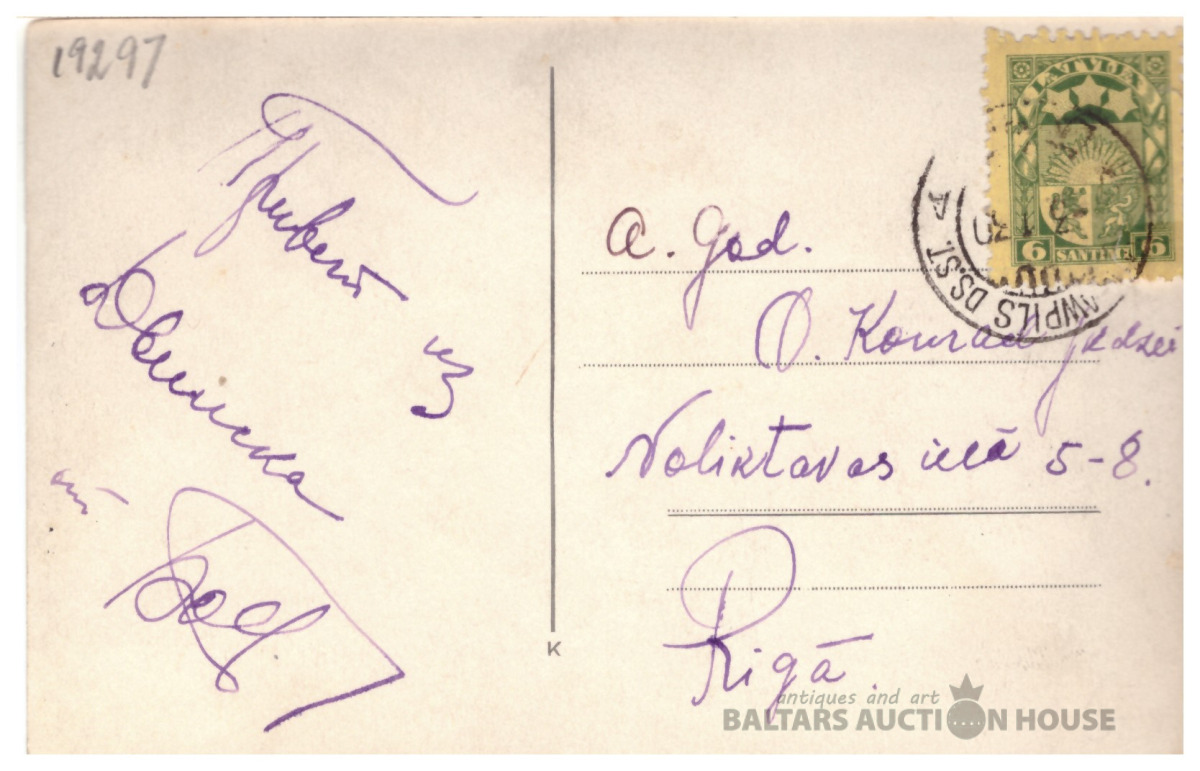 19297
Привет
из
Двинска
от
LATVIJA
6 SANTIMI 6
WPILS DS.ST. A
A. God.
O. Konrad
Noliktavas ielā 5-8.
Rīgā
K
antiques and art
BALTARS AUCTION HOUSE